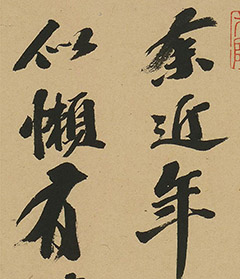 余近年
似懶有